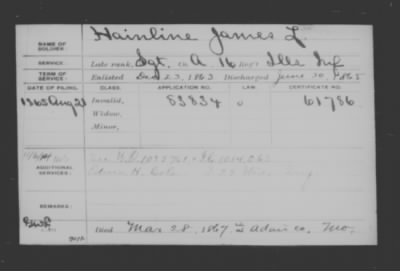 NAME OF SOLDIER: Hainline James L.
SERVICE: Late rank, Sgt. Co. A. 16 Reg't Ills Inf
TERM OF SERVICE: Enlisted Dec 23, 1863 Discharged June 30, 1865
DATE OF FILING. CLASS. APPLICATION NO. LAW. CERTIFICATE NO.
1865 Aug 21 Invalid, 83834 61786.
Widow,
Minor,
ADDITIONAL SERVICES:
REMARKS:
Died Mar 28, 1867, in Adair co, Mo,